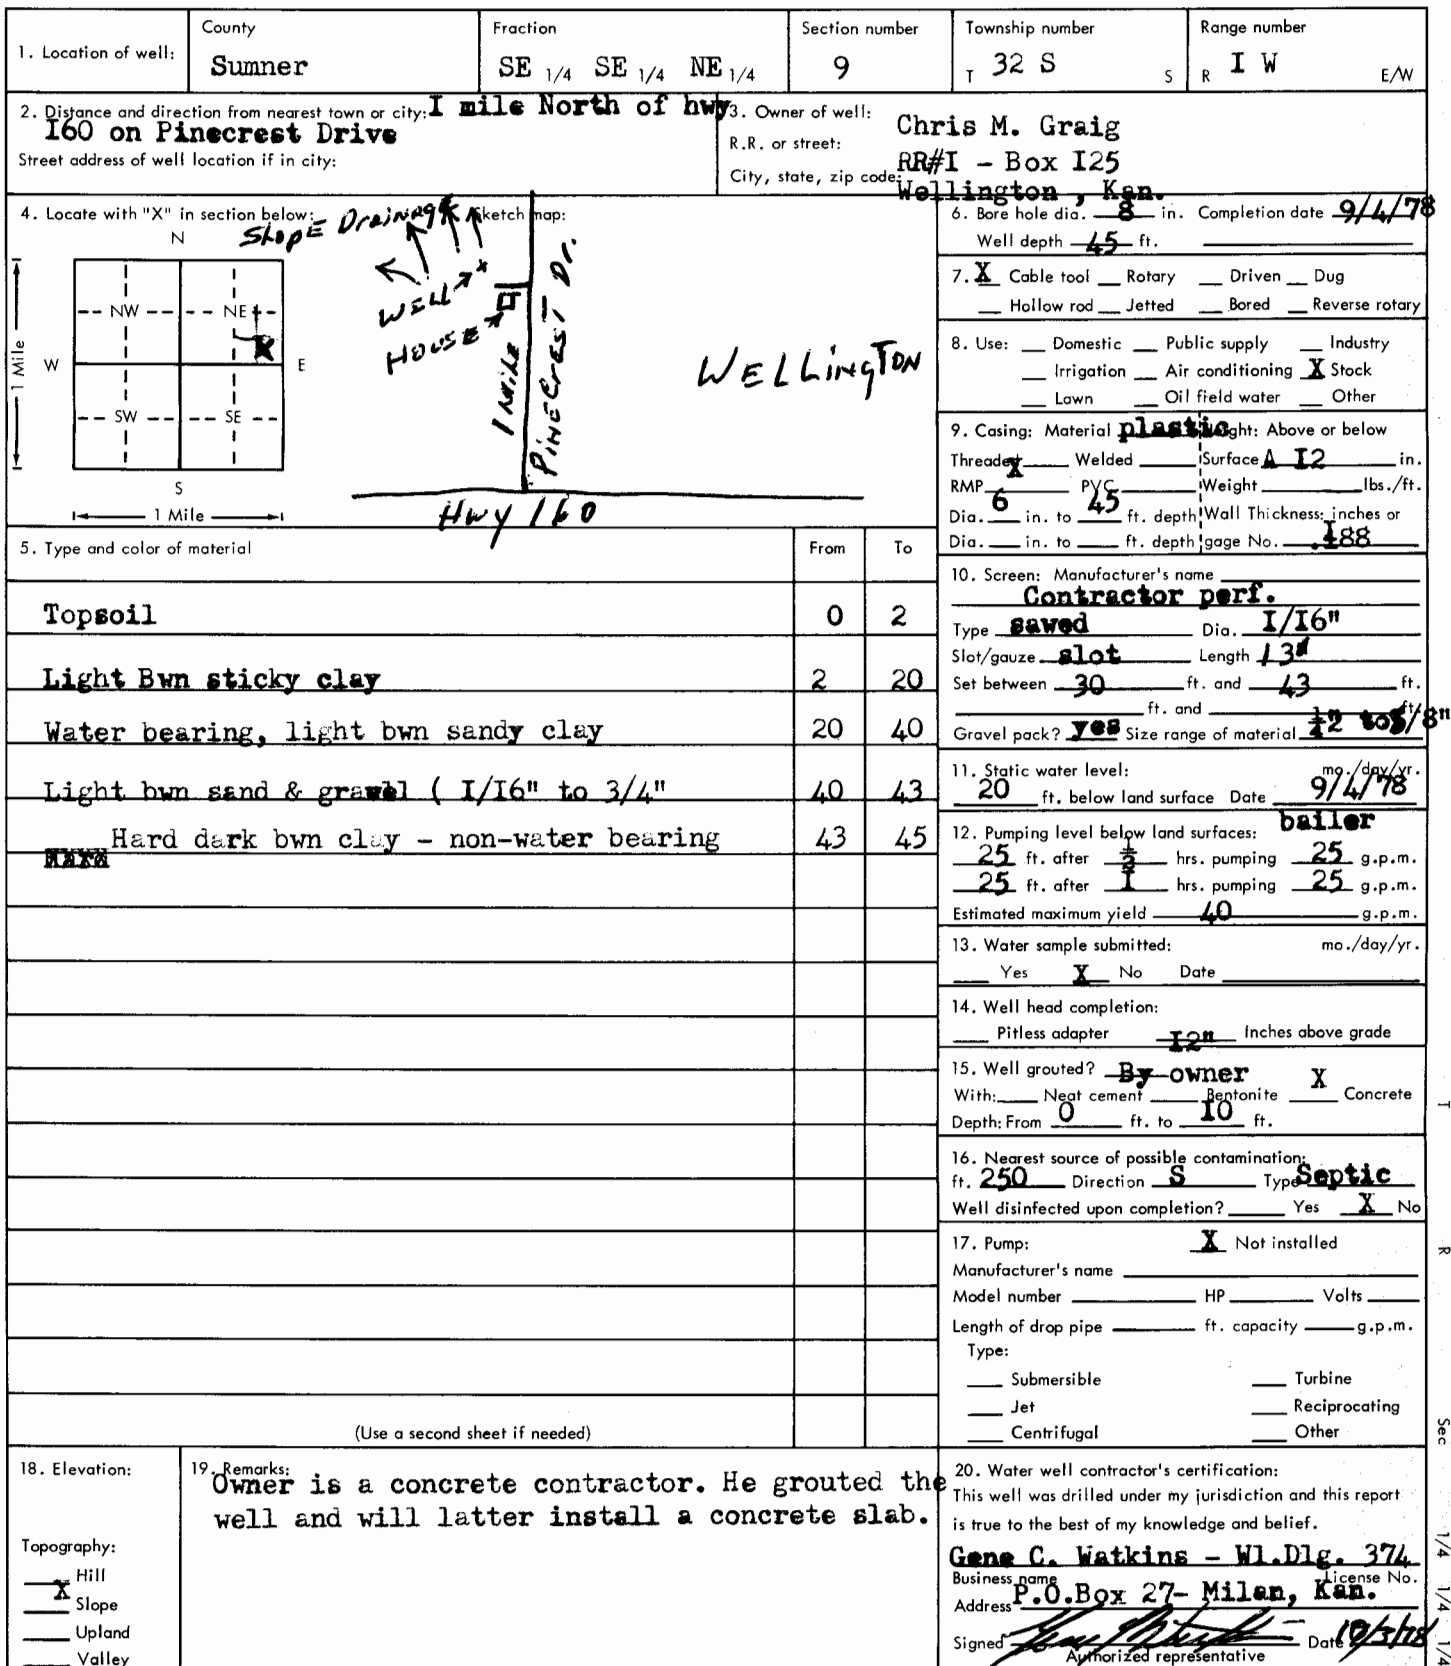 1. Location of well: County Sumner Fraction SE 1/4 SE 1/4 NE 1/4 Section number 9 Township number T 32 S S Range number R I W E/W
2. Distance and direction from nearest town or city: I mile North of hwy
I60 on Pinecrest Drive
Street address of well location if in city:
3. Owner of well: Chris M. Graig
R.R. or street: RR#I - Box I25
City, state, zip code: Wellington , Kan.
4. Locate with "X" in section below: Sketch map:
N
NW NE
W E
SW SE
S
1 Mile
1 Mile
X
SLOPE Drainage
WELL x
HOUSE
1 Mile
PINECREST Dr.
WELLingTON
Hwy 160
5. Type and color of material From To
Topsoil 0 2
Light Bwn sticky clay 2 20
Water bearing, light bwn sandy clay 20 40
Light bwn sand & gravel ( I/I6" to 3/4" 40 43
Hard dark bwn clay - non-water bearing 43 45
(Use a second sheet if needed)
6. Bore hole dia. 8 in. Completion date 9/4/78
Well depth 45 ft.
7. X Cable tool Rotary Driven Dug
Hollow rod Jetted Bored Reverse rotary
8. Use: Domestic Public supply Industry
Irrigation Air conditioning X Stock
Lawn Oil field water Other
9. Casing: Material plastic Height: Above or below
Threaded X Welded Surface A I2 in.
RMP PVC Weight lbs./ft.
Dia. 6 in. to 45 ft. depth Wall Thickness: inches or
Dia. in. to ft. depth gage No. .I88
10. Screen: Manufacturer's name
Contractor perf.
Type sawed Dia. I/I6"
Slot/gauze slot Length 13"
Set between 30 ft. and 43 ft.
ft. and ft.
Gravel pack? yes Size range of material to 5/8"
11. Static water level: mo./day/yr.
20 ft. below land surface Date 9/4/78
12. Pumping level below land surfaces: bailer
25 ft. after ½ hrs. pumping 25 g.p.m.
25 ft. after I hrs. pumping 25 g.p.m.
Estimated maximum yield 40 g.p.m.
13. Water sample submitted: mo./day/yr.
Yes X No Date
14. Well head completion:
Pitless adapter I2" Inches above grade
15. Well grouted? By owner
With: Neat cement Bentonite X Concrete
Depth: From 0 ft. to I0 ft.
16. Nearest source of possible contamination:
ft. 250 Direction S Type Septic
Well disinfected upon completion? Yes X No
17. Pump: X Not installed
Manufacturer's name
Model number HP Volts
Length of drop pipe ft. capacity g.p.m.
Type:
Submersible Turbine
Jet Reciprocating
Centrifugal Other
18. Elevation:
Topography:
Hill
X Slope
Upland
Valley
19. Remarks:
Owner is a concrete contractor. He grouted the
well and will latter install a concrete slab.
20. Water well contractor's certification:
This well was drilled under my jurisdiction and this report
is true to the best of my knowledge and belief.
Gene C. Watkins - Wl.Dlg. 374
Business name License No.
Address P.O.Box 27- Milan, Kan.
Signed Date 10/3/78
Authorized representative
T
R
Sec
1/4 1/4 1/4